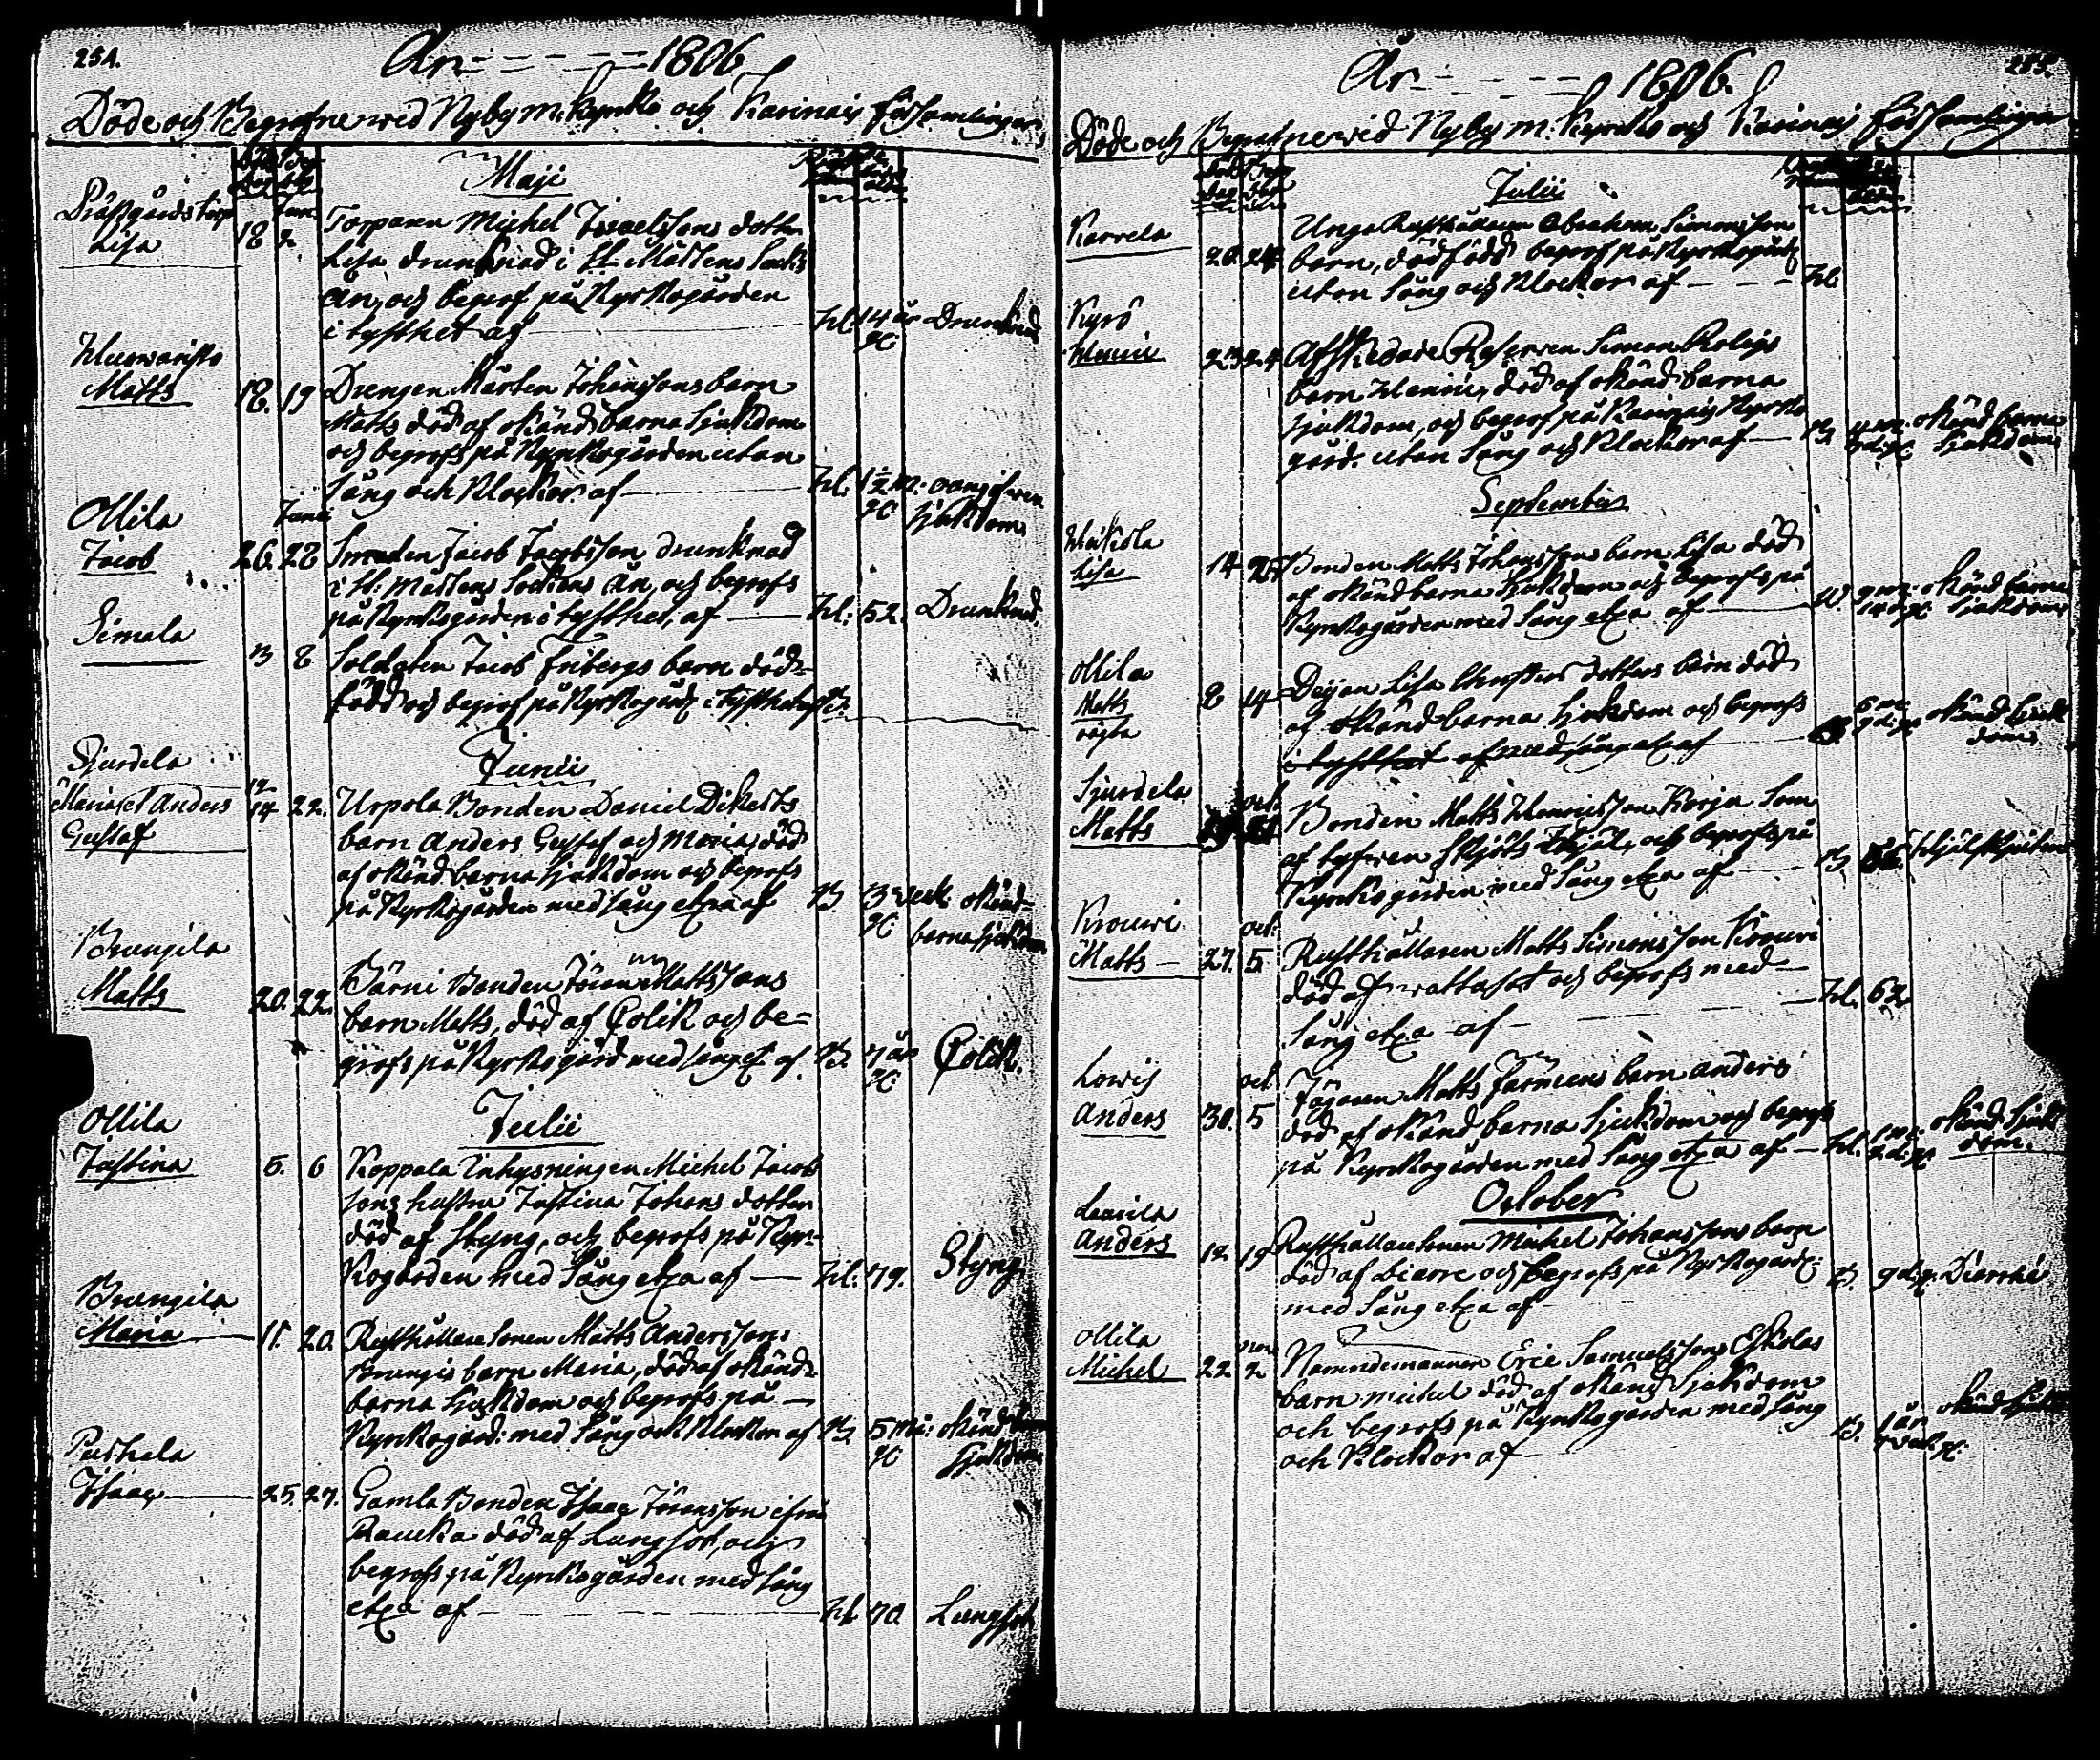 254.
År - - - - 1806
Döde och Begrofne wid Nyby m: Kyrko och Karinais församlingar
Maji
Prästgårds torp
Lisa
18
Jun.
2
Torparen Michel Israelssons dotter
Lisa drunknad i St. Mårtens Sockns
Ån, och begrof på Kyrkogården
i tysthet af
14 år
Drunknad
Matts
18.
19
Drengen Mårten Johanssons barn
Matts död af okänd barna sjukdom
och begrofs på Kyrkogården utan
sång och Klockor af
1½ m:
sjukdom
Ollila
Jacob
26.
Junii
28
Smeden Jacob Jacobsson drunknad
i St: Mårtens Sockns Ån, och begrofs
på Kyrkogården i tysthet, af
52.
Drunknad.
Simala
3
8
Soldaten Jacob Fribergs barn död-
född och begrof på Kyrkogård: i tysthet af
Junii
Sjurdela
Maria et Anders
Gustaf
12
14
22.
Urpola Bonden Daniel Dikerts
barn Anders Gustaf och Maria, död
af okänd barna sjukdom och begrofs
på Kyrkogården med sång etxa af
B.
3 veck.
okänd
barna sjukdom
Brunjila
Matts
20.
22.
Bärni Bonden Jöran Mattssons
barn Matts, död af Colik och be-
grofs på Kyrkogård med sång etx af
B.
7 år
Colik.
Julii
Ollila
Justina
5.
6
Koppala Inhysningen Michel Jacob
sons hustru Justina Johans dotter
död af Styng, och begrofs på Kyr-
kogården med Sång etxa af
79.
Styng
Brunjila
Maria
11.
20.
Rusthållare Sonen Matts Anderssons
Brunjis barn Maria, död af okänd
barna sjukdom och begrofs på
Kyrkogård: med Sång och Klockor af
B.
5 må:
okänd barna
sjukdom
Pashela
Isaac
25.
27.
Gamla Bonden Isaac Jöransson ifrån
Raucka död af Lungsot, och
begrofs på Kyrkogården med sång
etxa af
70.
Lungsot
255.
År - - - - 1806.
Döde och Begrofne wid Nyby m: Kyrko och Karinais församlingar
Julii
Karrela
20.
24.
Unga Rusthållaren Abraham Simonsson
barn, dödfödd begrof på Kyrkogård
utan Sång och Klockor af
Kyrö
23
24
Afskedade Reserven Simon Roligs
barn Henric, död af okänd barna
sjukdom, och begrof på Karinais Kyrko
gård. utan Sång och Klockor af
B.
okänd barna
sjukdom
September
Lisa
14
Bonden Matts Johanssons barn Lisa död
af okänd barna sjukdom och begrofs på
Kyrkogården med Sång etxa af
okänd barna
sjukdom
Ollila
Matts
8
14
Deijan Lisa Christers dotters barn död
af okänd barna sjukdom och begrofs
i tysthet af med sång etxa af
okänd sjuk
dom
Sjurdela
Matts
oct.
Bonden Matts Henricsson Korja som
af tyfwen skjöts ihjäl, och begrofs på
Kyrkogården med Sång etxa af
B.
Krouwi
Matts
27.
oct:
5.
Rusthållaren Matts Simonsson Krouwi
död af wattusot och begrofs med
Sång etxa af
62
Lowis
Anders
30.
oct
5
Jägaren Matts Färmens barn Anders
död af okänd barna sjukdom och begrofs
på Kyrkogården med Sång etxa af
okänd sjuk
dom.
October
Anders
12
19
Rusthållare Sonen Michel Johanssons barn
död af Diarre och begrofs på Kyrkogård:
med Sång etxa af
B.
Diarrhé
Ollila
Michel
22
nov.
2
Nämndemannen Eric Samuelssons Eskolas
barn Michel död af okänd Sjukdom
och begrofs på Kyrkogården med sång
och Klockor af
B.
1 år